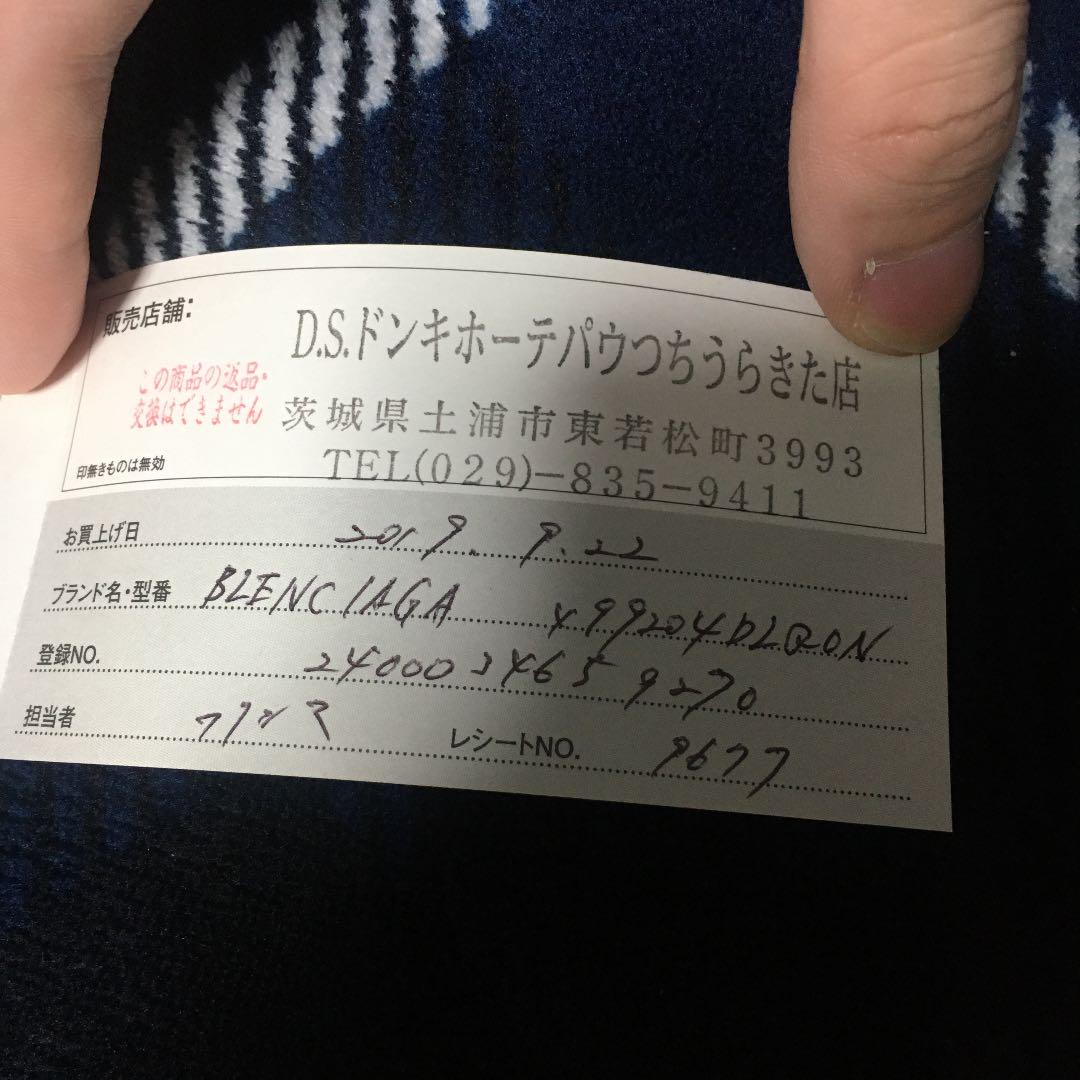 販売店舗:
D.S.ドンキホーテパウつちうらきた店
この商品の返品・
交換はできません
茨城県土浦市東若松町3993
TEL(029)-835-9411
印無きものは無効
お買上げ日 2019. 9. 22
ブランド名・型番 BLENCIAGA 499204DLQON
登録NO. 2400034659270
担当者
レシートNO. 9677